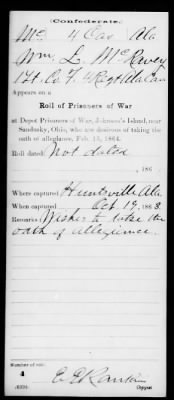 (Confederate.)
Mc 4 Cav Ala
Wm. L. McRevey
1 Lt. Co. F. 4 Regt Ala Cav
Appears on a
Roll of Prisoners of War
at Depot Prisoners of War, Johnson's Island, near
Sandusky, Ohio, who are desirous of taking the
oath of allegiance, Feb. 13, 1864.
Roll dated Not dated
, 186 .
Where captured Huntsville Ala
When captured Oct 19, 1863.
Remarks: Wishes to take the
oath of allegiance.
Number of roll:
4
E E Rankin
Copyist.